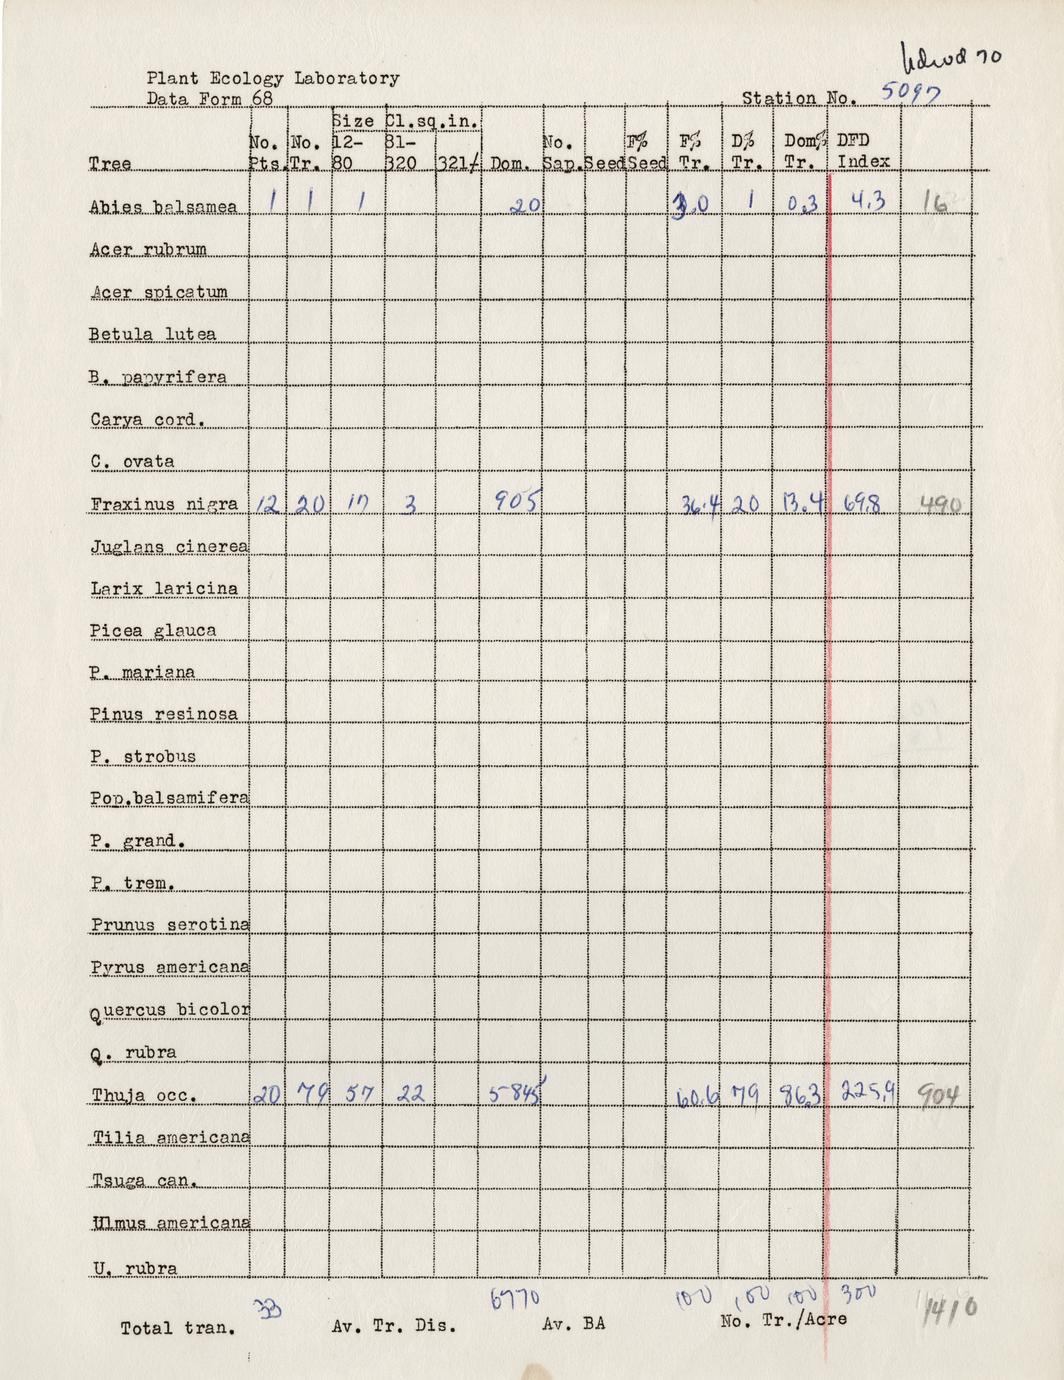 Hdwd 70
Plant Ecology Laboratory
Data Form 68 Station No. 5097
Size Cl.sq.in.
No. No. 12- 81- No. F% F% D% Dom% DFD
Tree Pts. Tr. 80 320 321/ Dom. Sap. Seed Seed Tr. Tr. Tr. Index
Abies balsamea 1 1 1 20 3.0 1 0.3 4.3 16
Acer rubrum
Acer spicatum
Betula lutea
B. papyrifera
Carya cord.
C. ovata
Fraxinus nigra 12 20 17 3 905 36.4 20 13.4 69.8 490
Juglans cinerea
Larix laricina
Picea glauca
P. mariana
Pinus resinosa
P. strobus
Pop.balsamifera
P. grand.
P. trem.
Prunus serotina
Pyrus americana
Quercus bicolor
Q. rubra
Thuja occ. 20 79 57 22 5845 60.6 79 86.3 225.9 904
Tilia americana
Tsuga can.
Ulmus americana
U. rubra
33 6770 100 100 100 300 1410
Total tran. Av. Tr. Dis. Av. BA No. Tr./Acre